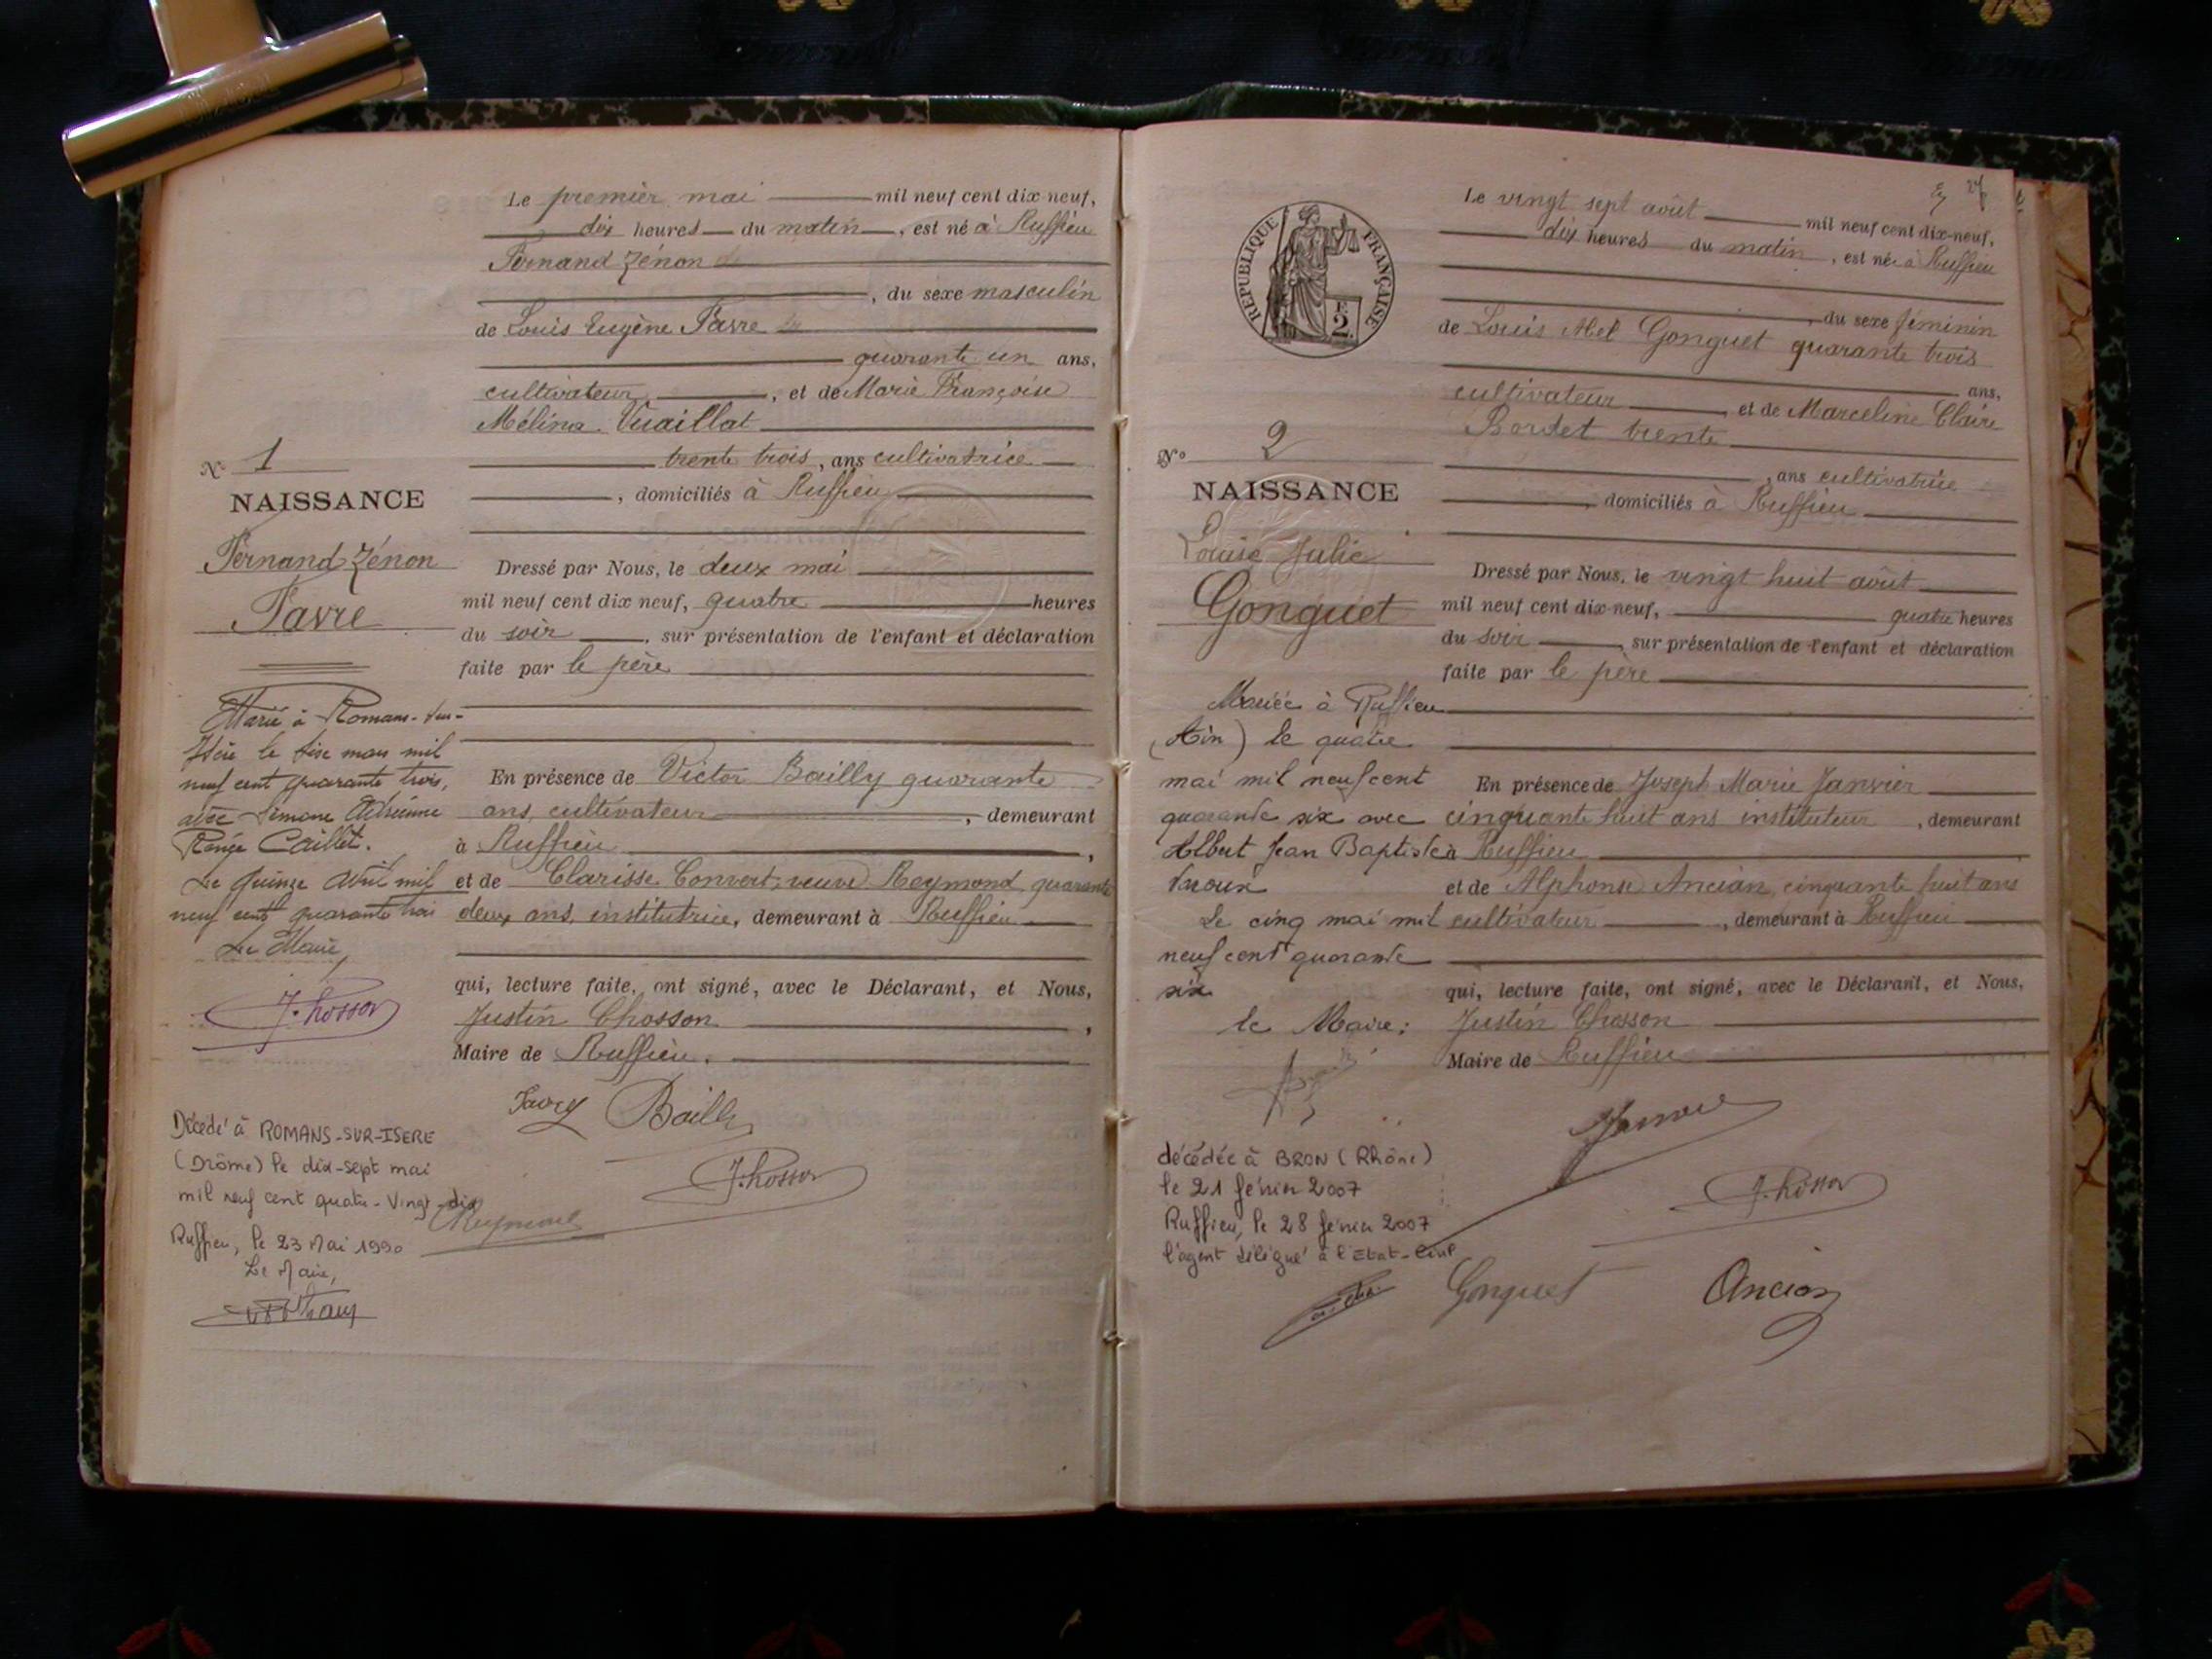 Le premier mai mil neuf cent dix-neuf,
dix heures du matin, est né à Ruffieu
Fernand Zénon
, du sexe masculin
de Louis Eugène Favre
quarante un ans,
cultivateur, et de Marie Françoise
Mélina Vuaillat
trente trois, ans cultivatrice
, domiciliés à Ruffieu
N° 1
NAISSANCE
Fernand Zénon
Favre
Dressé par Nous, le deux mai
mil neuf cent dix neuf, quatre heures
du soir, sur présentation de l'enfant et déclaration
faite par le père
En présence de Victor Bailly quarante
ans, cultivateur, demeurant
à Ruffieu,
et de Clarisse Convert, veuve Reymond, quarante
deux ans, institutrice, demeurant à Ruffieu
qui, lecture faite, ont signé, avec le Déclarant, et Nous,
Justin Chosson,
Maire de Ruffieu.
Marié à Romans-sur-
Isère le seize mars mil
neuf cent quarante trois,
avec Simone Adrienne
Caillet.
Le quinze avril mil
neuf cent quarante trois
Le Maire,
J. Chosson
Favre Bailly
J. Chosson
Reymond
Décédé à ROMANS-SUR-ISERE
(Drôme) le dix-sept mai
mil neuf cent quatre-vingt-dix
Ruffieu, le 23 Mai 1990
Le Maire,
27
REPUBLIQUE FRANÇAISE
2F
Le vingt sept août mil neuf cent dix-neuf,
dix heures du matin, est née à Ruffieu
, du sexe féminin
de Louis Abel Gonguet quarante trois
ans,
cultivateur, et de Marceline Claire
Bordet trente
, ans cultivatrice
, domiciliés à Ruffieu
N° 2
NAISSANCE
Louise Julie
Gonguet
Dressé par Nous, le vingt huit août
mil neuf cent dix-neuf, quatre heures
du soir, sur présentation de l'enfant et déclaration
faite par le père
En présence de Joseph Marie Janvier
cinquante huit ans instituteur, demeurant
à Ruffieu,
et de Alphonse Ancian, cinquante huit ans
cultivateur, demeurant à Ruffieu
qui, lecture faite, ont signé, avec le Déclarant, et Nous,
Justin Chosson
Maire de Ruffieu
Mariée à Ruffieu
(Ain) le quatre
mai mil neuf cent
quarante six avec
Albert Jean Baptiste
Le cinq mai mil
neuf cent quarante
six
le Maire:
Janvier
J. Chosson
Gonguet Ancian
décédée à BRON (Rhône)
le 21 février 2007
Ruffieu, le 28 février 2007
l'agent délégué à l'Etat-Civil